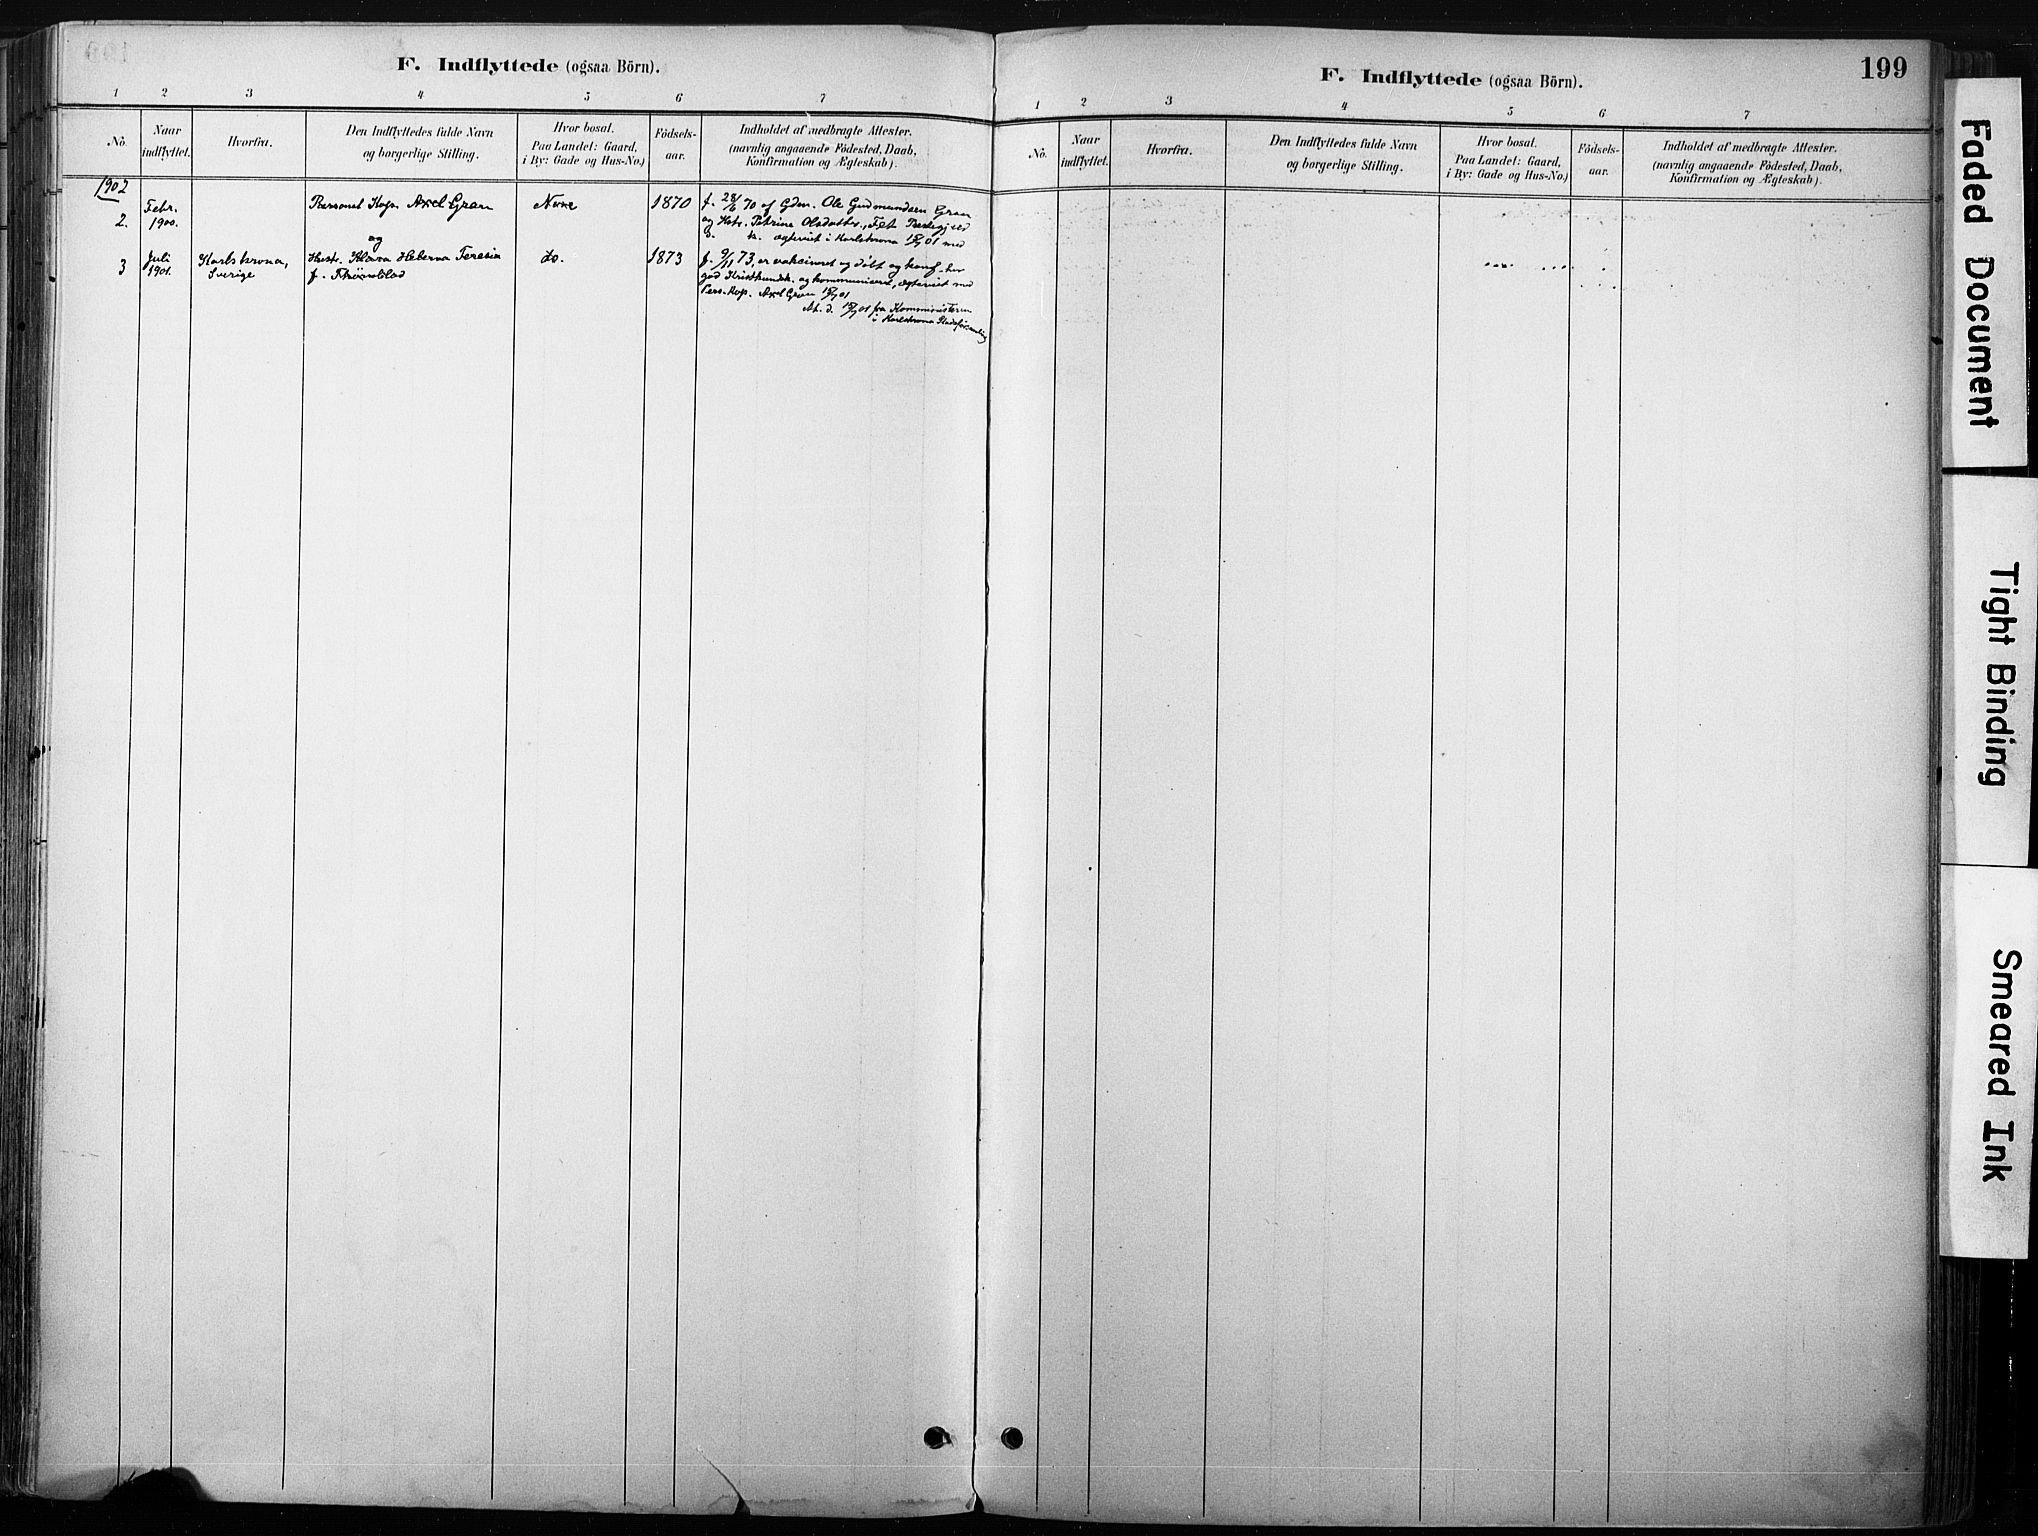 F. Indflyttede (ogsaa Börn).
1 2 3 4 5 6 7
No.
Naar indflyttet.
Hvorfra.
Den Indflyttedes fulde Navn
og borgerlige Stilling.
Hvor bosat.
Paa Landet: Gaard,
i By: Gade og Hus-No.)
Födsels-
aar.
Indholdet af medbragte Attester.
(navnlig angaaende Födested, Daab,
Konfirmation og Ægteskab).
1902
2.
Febr.
1900.
Personel Kap. Axel Gran
og
1870
f. 28/6 70 af Gdm. Ole Gudmundsen Gran
og Hstr. Petrine Olsdatter, Fet Prestegjeld
ægteviet i Karlskrona 01 med
3
Juli
1901.
Karlskrona,
Sverige
Hustr. Klara Teresia
f.
do.
1873
f. 9/11 73, er vakcineret og døbt og konf. har
god Kristkundsk. og kommuniceret, ægteviet med
Pers. Kap. Axel Gran 01
At. d. 01 fra Kommunisteren
i Karlskrona
F. Indflyttede (ogsaa Börn).
199
1 2 3 4 5 6 7
No.
Naar
indflyttet.
Hvorfra.
Den Indflyttedes fulde Navn
og borgerlige Stilling.
Hvor bosat.
Paa Landet: Gaard,
i By: Gade og Hus-No.)
Födsels-
aar.
Indholdet af medbragte Attester.
(navnlig angaaende Födested, Daab,
Konfirmation og Ægteskab).
Faded Document
Tight Binding
Smeared Ink